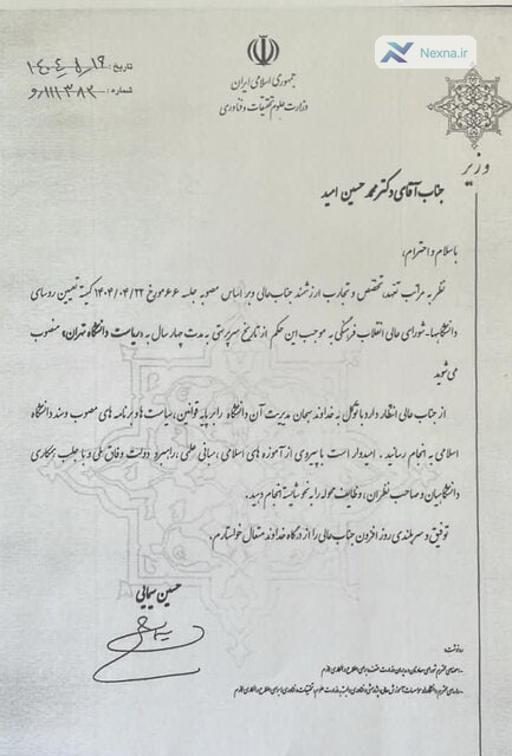 Nexna.ir
جمهوری اسلامی ایران
وزارت علوم تحقیقات و فناوری
تاریخ:
شماره:
وزیر
جناب آقای دکتر محمد حسین امید
با سلام و احترام؛
نظر به مراتب تعهد، تخصص و تجارب ارزشمند جناب‌عالی و بر اساس مصوبه جلسه ۶۶ مورخ ۱۴۰۴/۰۴/۲۲ کمیته تعیین روسای
دانشگاهها-شورای عالی انقلاب فرهنگی به موجب این حکم از تاریخ سرپرستی به مدت چهار سال به «ریاست دانشگاه تهران» منصوب
می‌شوید
از جناب عالی انتظار دارد با توکل به خداوند سبحان مدیریت آن دانشگاه را بر پایه قوانین، سیاست ها و برنامه های مصوب و سند دانشگاه
اسلامی به انجام رسانید. امیدوار است با پیروی از آموزه های اسلامی، مبانی علمی، راهبرد دولت وفاق ملی و با جلب همکاری
دانشگاهیان و صاحب نظران، وظایف محوله را به نحو شایسته انجام دهید.
توفیق و سربلندی روز افزون جناب عالی را از درگاه خداوند متعال خواستارم.
حسین سیمایی
رونوشت: